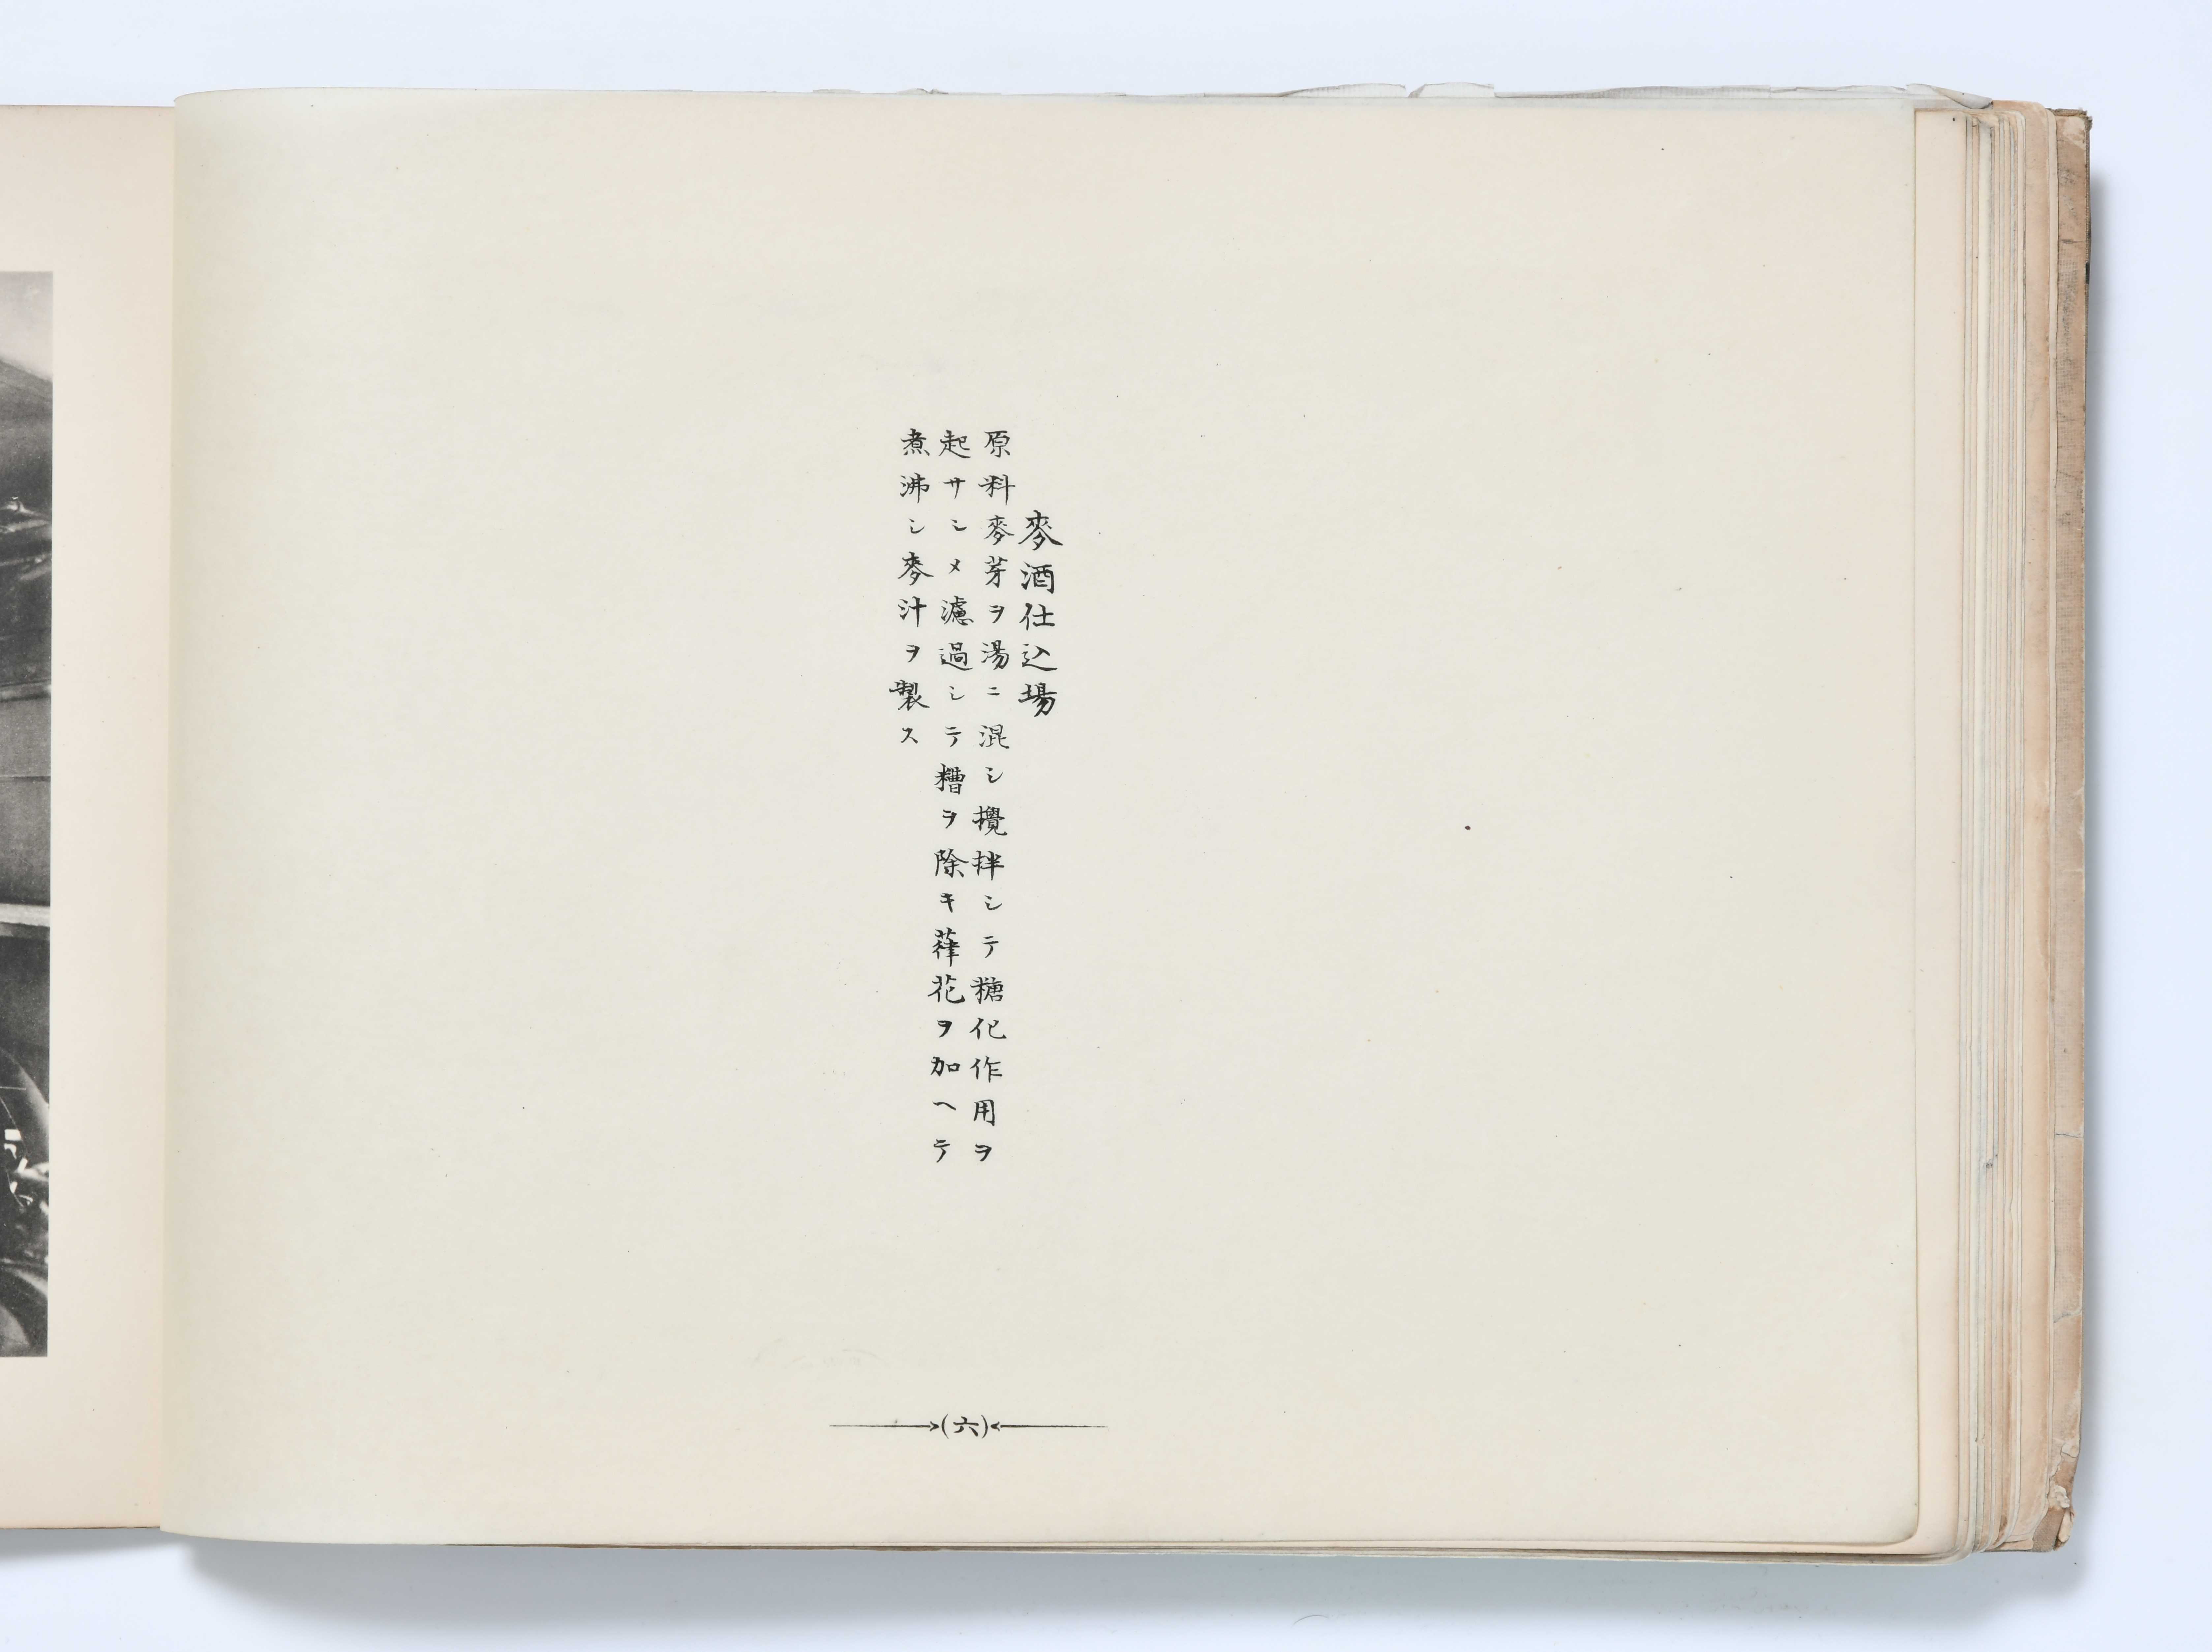 麥酒仕込場
原料麥芽ヲ湯ニ混シ攪拌シテ糖化作用ヲ
起サシメ濾過シテ糟ヲ除キ葎花ヲ加ヘテ
煮沸シ麥汁ヲ製ス
(六)